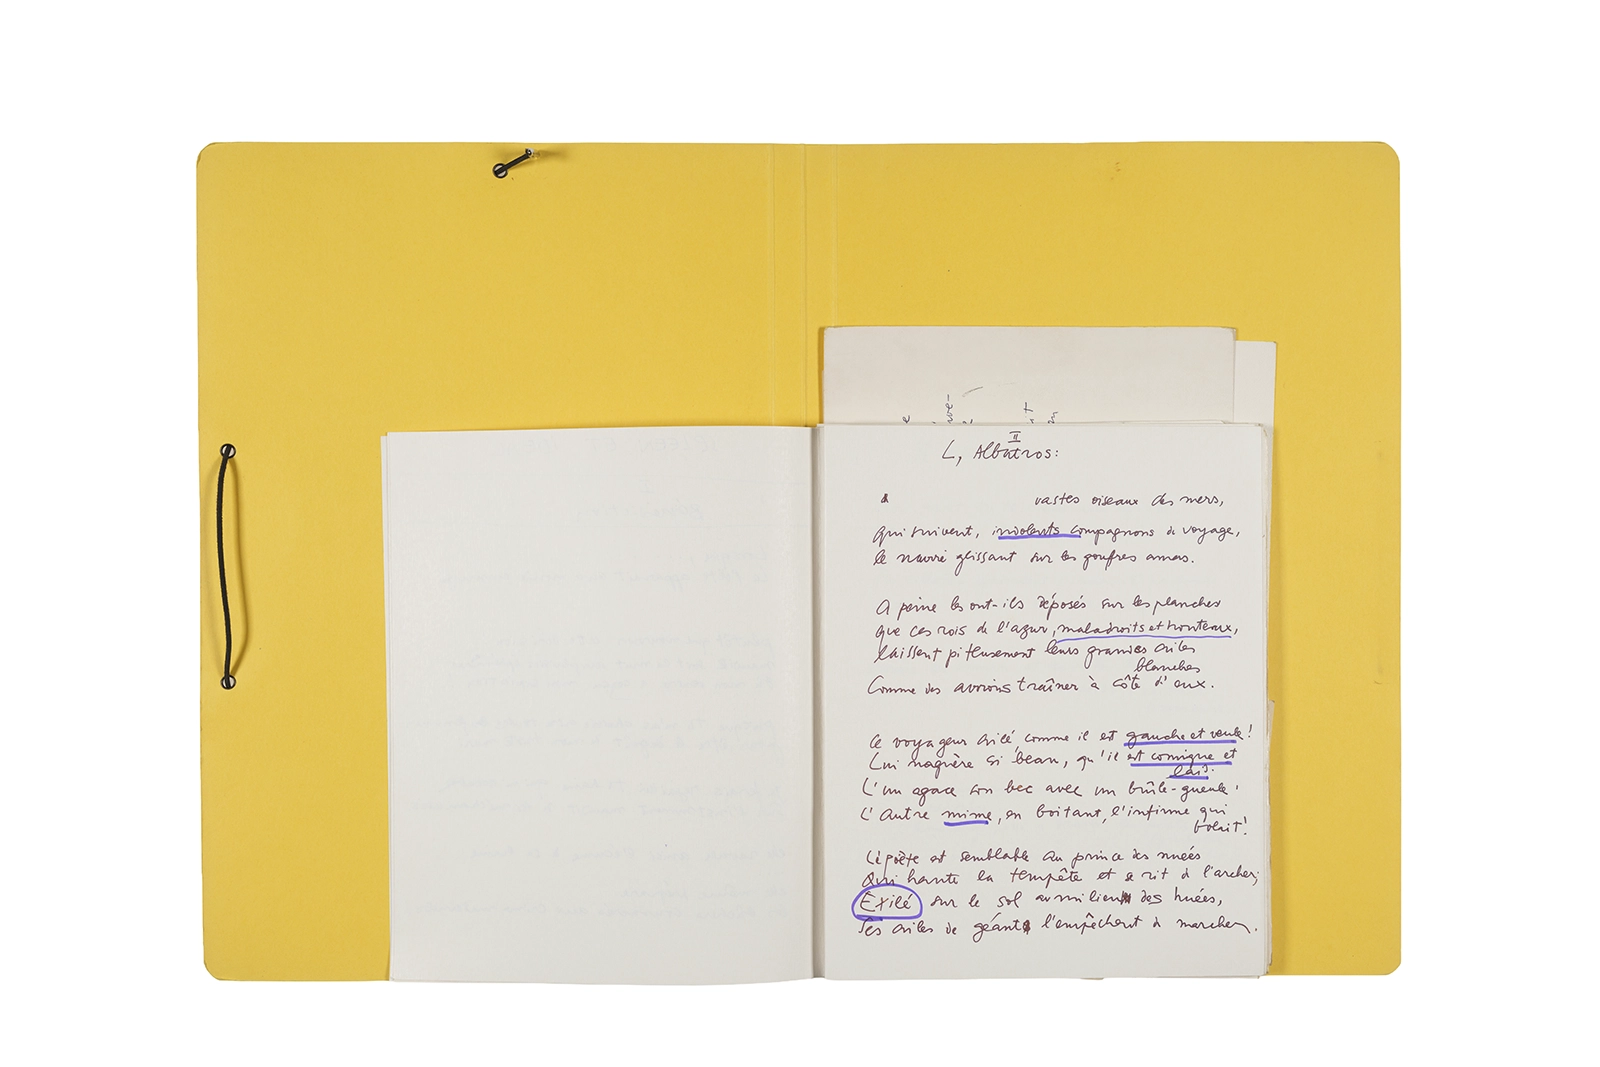 II
L, Albatros:
vastes oiseaux des mers,
qui suivent, indolents compagnons de voyage,
le navire glissant sur les gouffres amers.
A peine les ont-ils déposés sur les planches
que ces rois de l'azur, maladroits et honteux,
laissent piteusement leurs grandes ailes
blanches
Comme des avirons traîner à côté d'eux.
Ce voyageur ailé, comme il est gauche et veule!
Lui naguère si beau, qu'il est comique et
laid.
L'un agace son bec avec un brûle-gueule,
L'autre mime, en boitant, l'infirme qui
volait!
Le poète est semblable au prince des nuées
Qui hante la tempête et se rit de l'archer;
Exilé sur le sol au milieu des huées,
Ses ailes de géant l'empêchent de marcher.